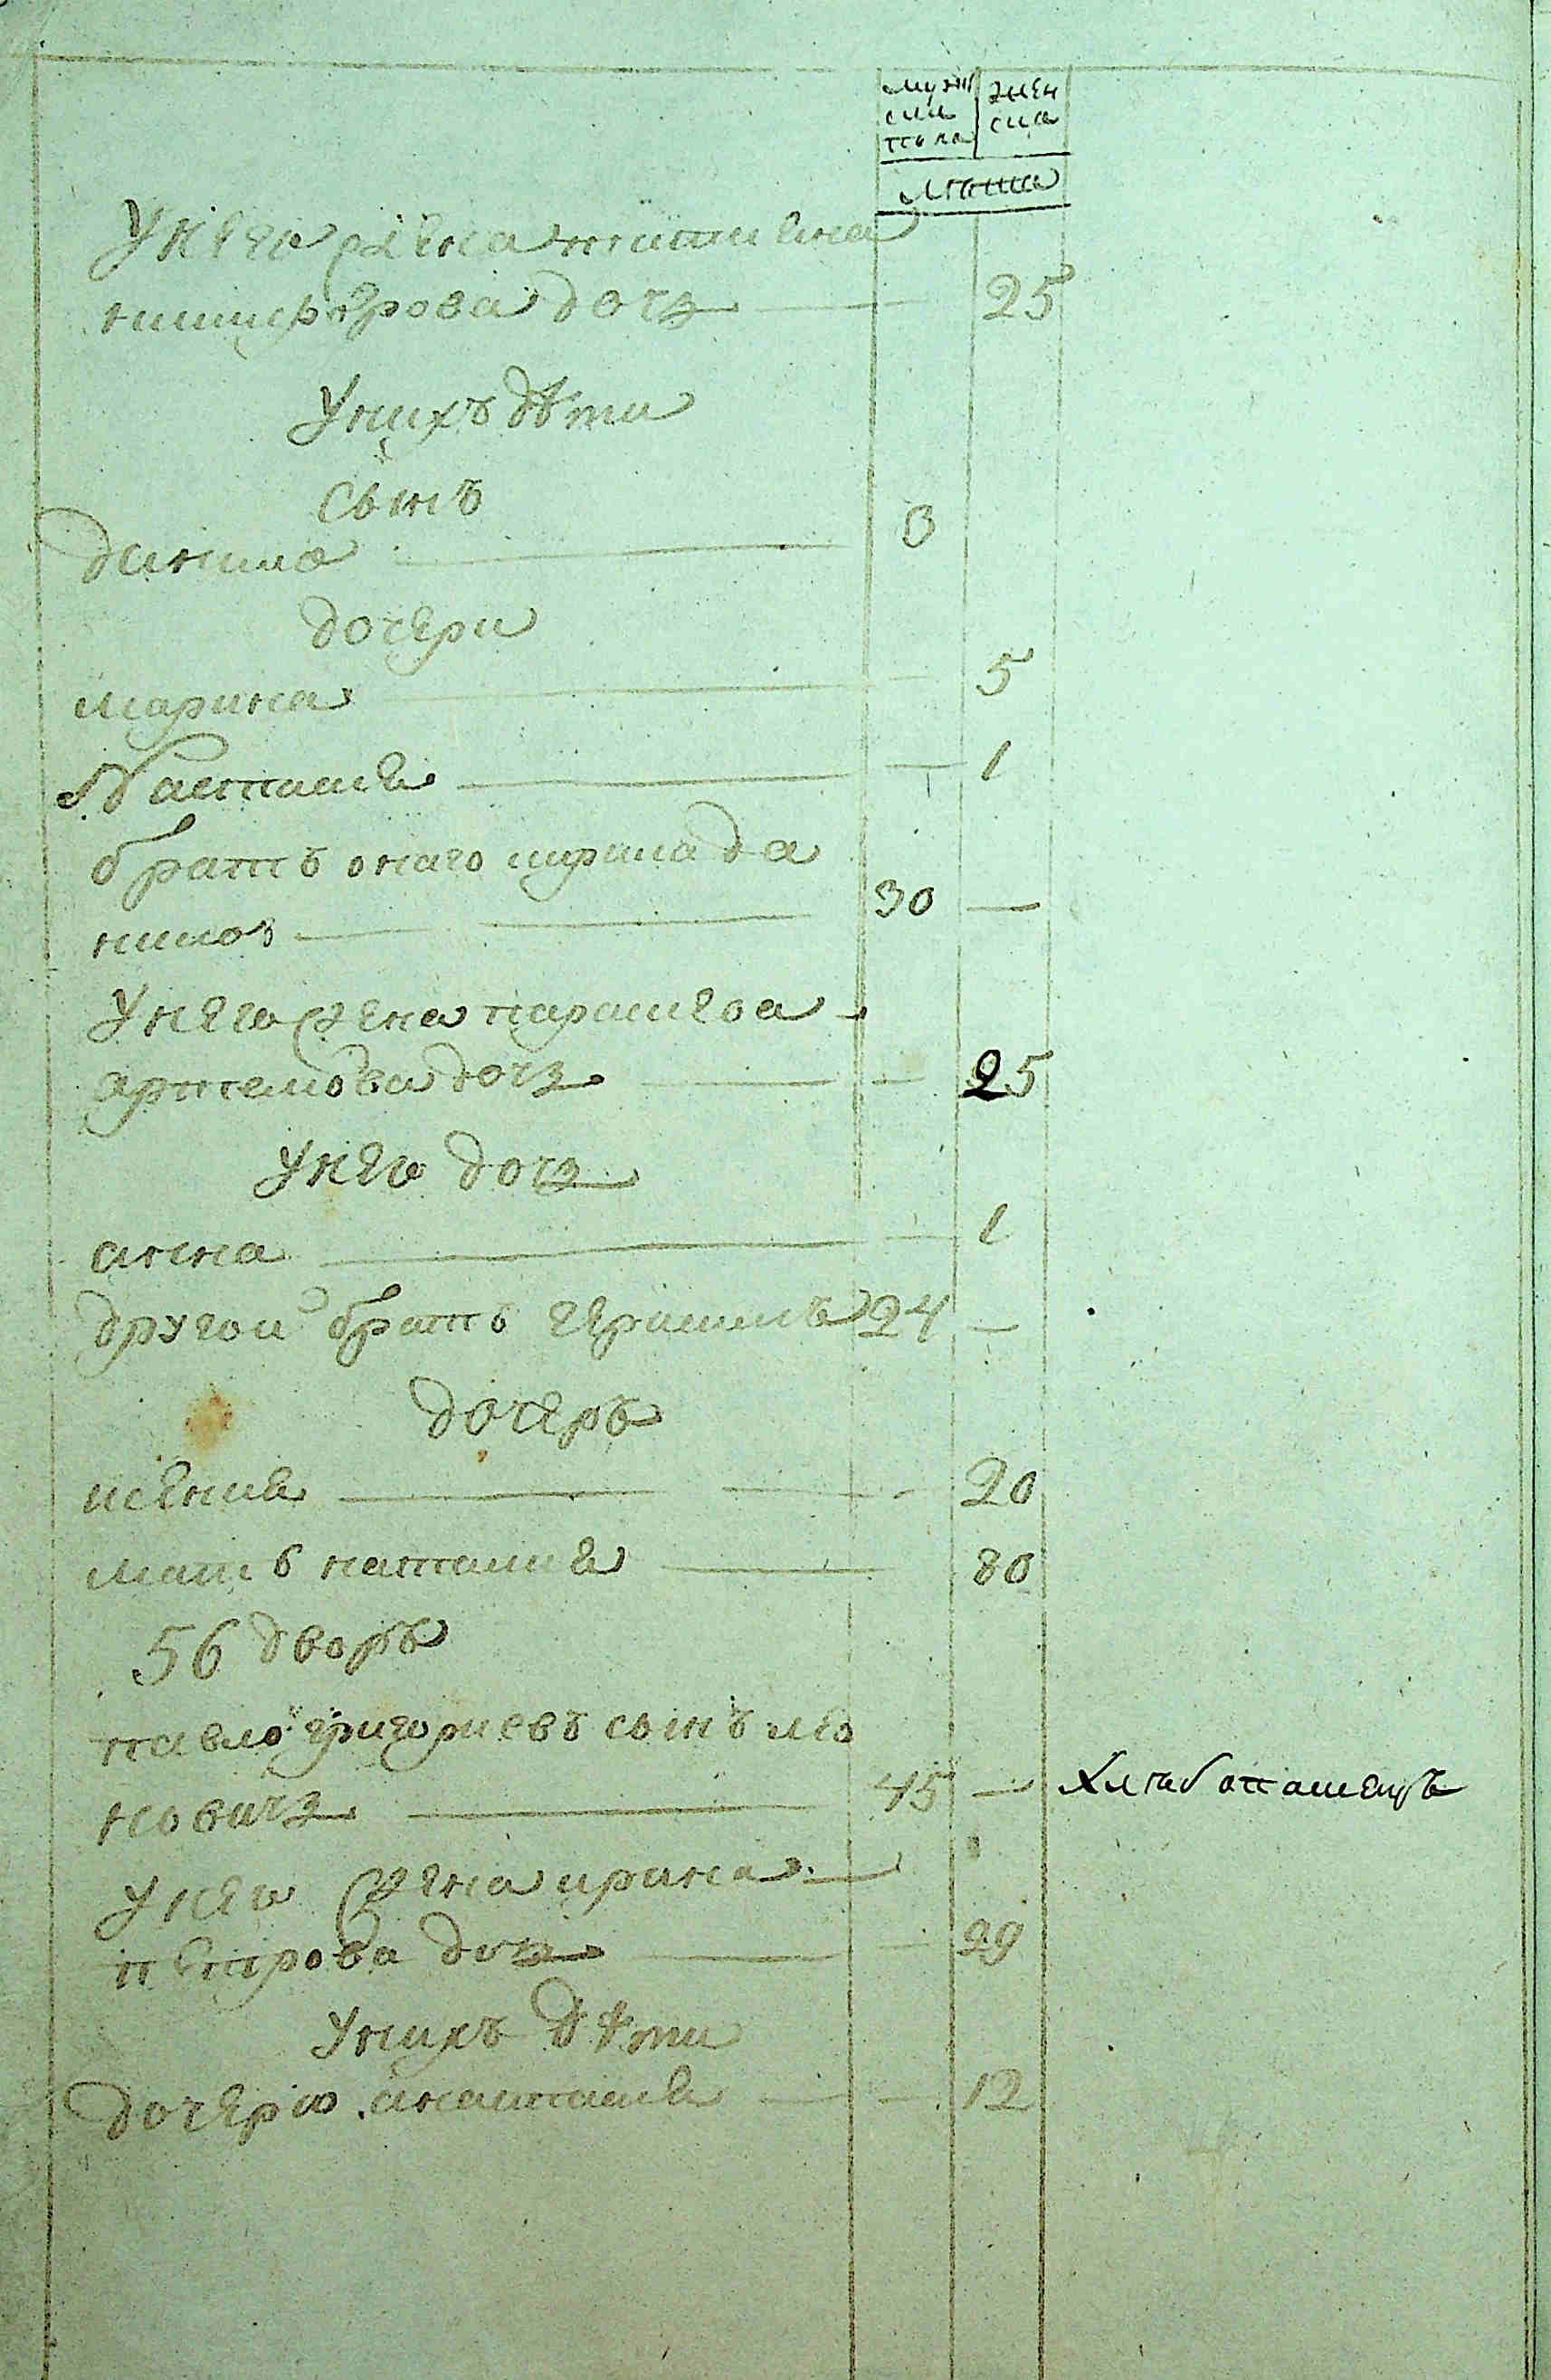 мужи жен
ска ска
пола
лѣта
У него жена татиана
никифорова дочь — 25
У нихъ дѣти
сынъ
данило — 3
дочери
марина — 5
Настасия — — 1
братъ онаго кирила да
нило — 30 —
У него жена параскева
артемова дочь — — 25
У него дочь
анна — — 1
другои братъ герасимъ 24 —
дочерь
ксения — — 20
мать наталия — 80
56 дворъ
павло григориевъ сынъ ло
новичь — 45 — Хлѣбопашецъ
У него жена ирина
петрова дочь — — 29
У нихъ дѣти
дочерь анастасия — — 12